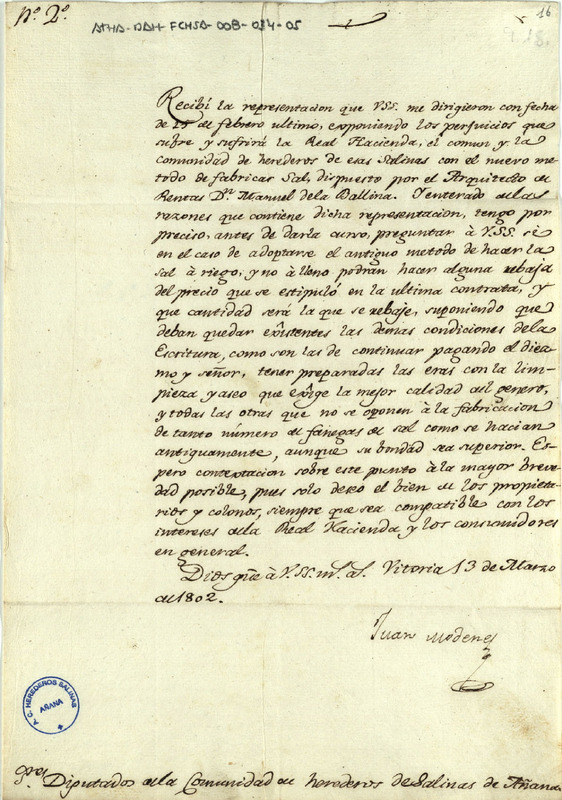 Nº 2º
ATHA-DAH-FCHSA-008-034-05
16
Recibí la representacion que VSS. me dirigieron con fecha
de 15 de febrero ultimo, exponiendo los perjuicios que
sufre y sufrirá la Real Hacienda, el comun y la
comunidad de herederos de esas Salinas con el nuevo me-
todo de fabricar Sal, dispuesto por el Arquitecto de
Rentas Dn. Manuel dela Ballina. Y enterado delas
razones que contiene dicha representacion, tengo por
preciso, antes de darla curso, preguntar à V.SS. si
en el caso de adoptarse el antiguo metodo de hacer la
sal à riego, y no à lleno podrán hacer alguna rebaja
del precio que se estipuló en la ultima contrata, y
que cantidad será la que se rebaje, suponiendo que
deban quedar exîstentes las demas condiciones dela
Escritura, como son las de continuar pagando el diez-
mo y señor, tener preparadas las eras con la lim-
pieza y aseo que exîge la mejor calidad del genero,
y todas las otras que no se oponen à la fabricacion
de tanto número de fanegas de sal como se hacian
antiguamente, aunque su bondad sea superior. Es-
pero contextacion sobre este punto à la mayor breve-
dad posible, pues solo deseo el bien de los propieta-
rios y colonos, siempre que sea compatible con los
intereses dela Real Hacienda y los consumidores
en general.
Dios gũe à V.SS. ms. as. Vitoria 13 de Marzo
de 1802.
Juan Modenes
A. C. HEREDEROS SALINAS
AÑANA
Sres. Diputados dela Comunidad de herederos de Salinas de Añana